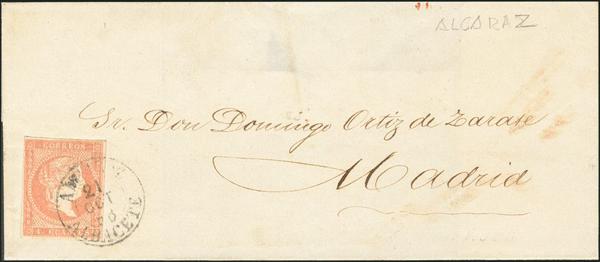 ALCARAZ
Sr. Don Domingo Ortiz de Zarate
Madrid
CORREOS
21
OCT
ALBACETE